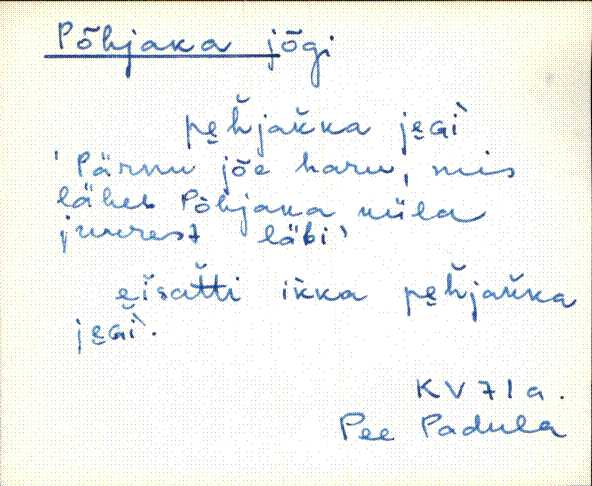 Põhjaka jõgi
pe̮h̆jak̆ka je̮Gì
'Pärnu jõe haru, mis
läheb Põhjaka küla
juurest läbi'
e̮ĭsat̆ti ikka pe̮h̆jak̆ka
je̮Gì.
KV 71 a.
Pee Padula